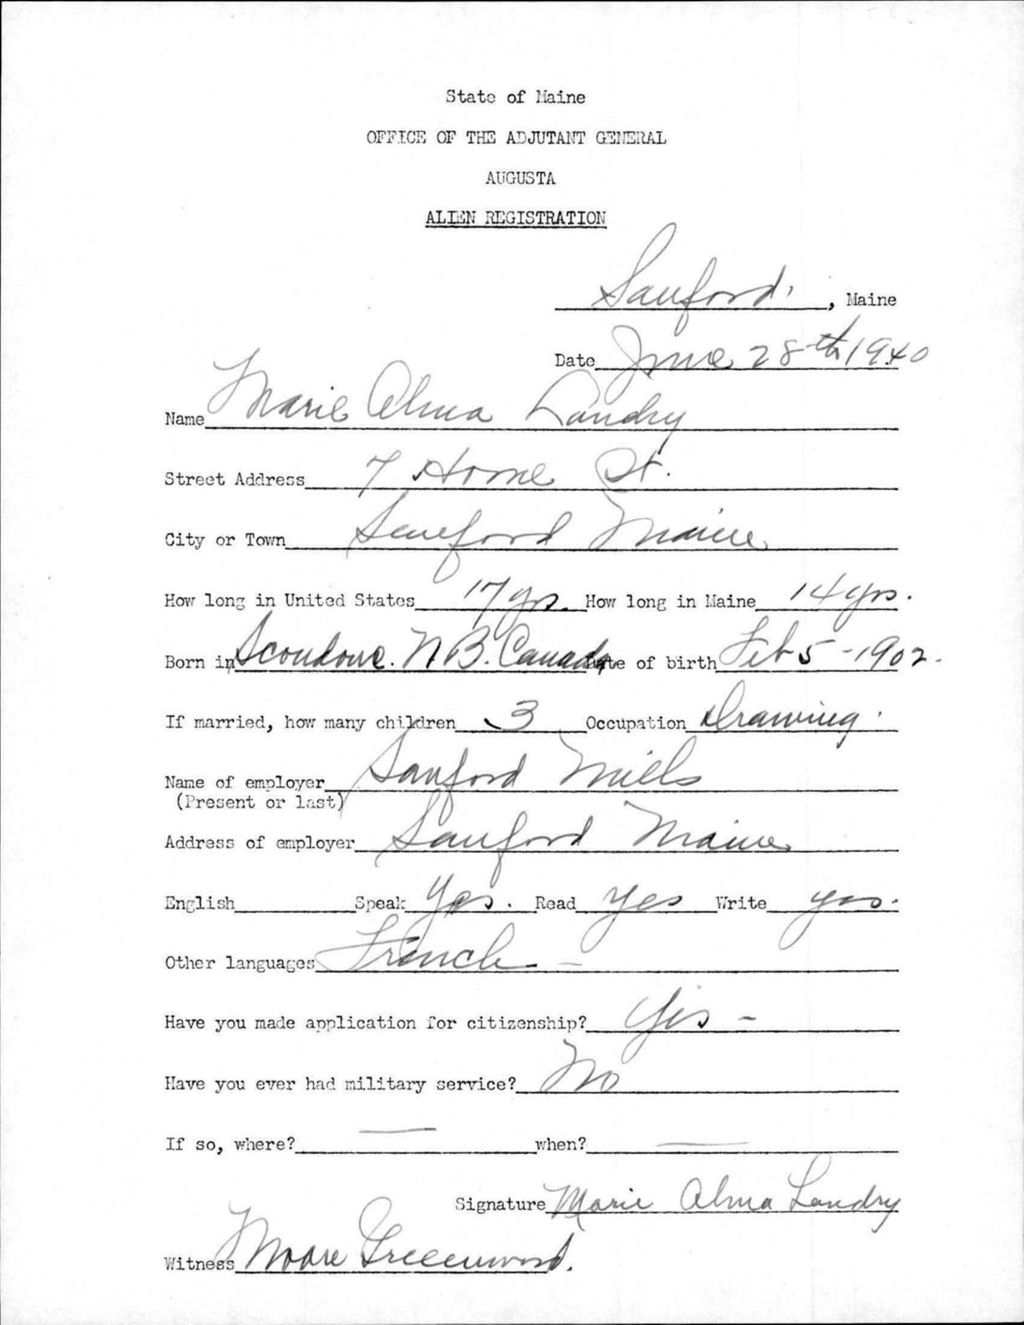 State of Maine
OFFICE OF THE ADJUTANT GENERAL
AUGUSTA
ALIEN REGISTRATION
Sanford, Maine
Date June 28th 1940
Name Marie Alma Landry
Street Address 7 Home St.
City or Town Sanford Maine
How long in United States 17 yrs. How long in Maine 14 yrs.
Born in Scoudouc. N B. Canada Date of birth Feb 5 - 1902.
If married, how many children 3 Occupation Drawing.
Name of employer Sanford Mills
(Present or last)
Address of employer Sanford Maine
English Speak Yes. Read Yes Write yes.
Other languages French -
Have you made application for citizenship? Yes -
Have you ever had military service? No
If so, where? — when? —
Signature Marie Alma Landry
Witness Moore Greenwood.